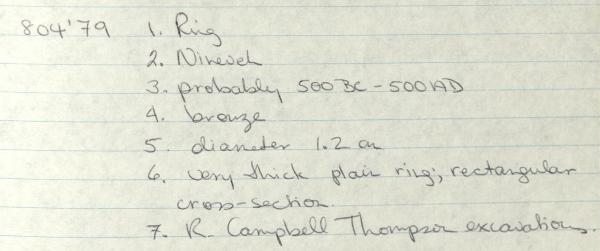 804'79 1. Ring
2. Nineveh
3. probably 500 BC - 500 AD
4. bronze
5. diameter 1.2 cm
6. very thick plain ring; rectangular
cross-section.
7. R. Campbell Thompson excavations.